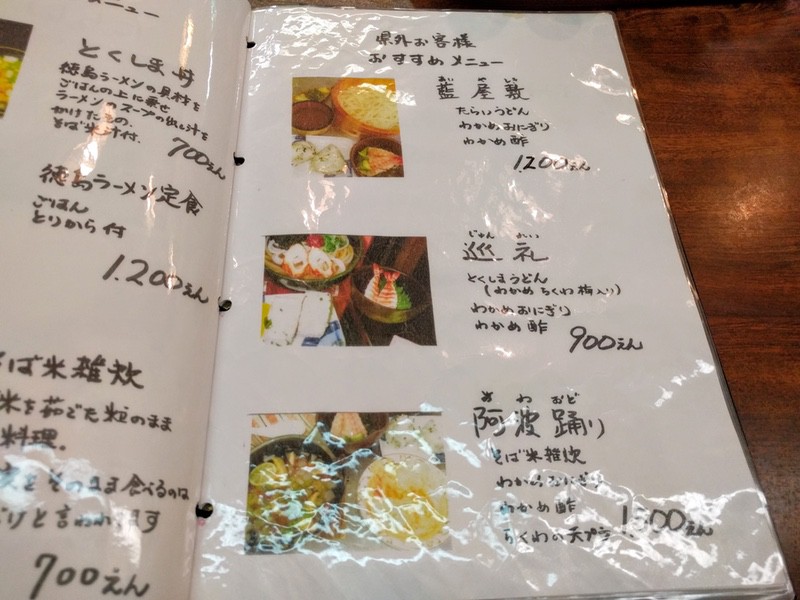 メニュー
とくしま丼
徳島ラーメンの具材を
ごはんの上に乗せ
ラーメンのスープの出し汁を
かけたもの。
そば米汁付。
700えん
徳島ラーメン定食
ごはん
とりから付
1.200えん
そば米雑炊
米を茹でた粒のまま
料理。
そのまま食べるのは
と言われます
700えん
県外お客様
おすすめメニュー
あい や しき
藍屋敷
たらいうどん
わかめおにぎり
わかめ酢
1.200えん
じゅん れい
巡礼
とくしまうどん
(わかめ ちくわ 梅入り)
わかめおにぎり
わかめ酢
900えん
あ わ おど
阿波踊り
そば米雑炊
わかめおにぎり
わかめ酢
ちくわの天プラ
1.500えん